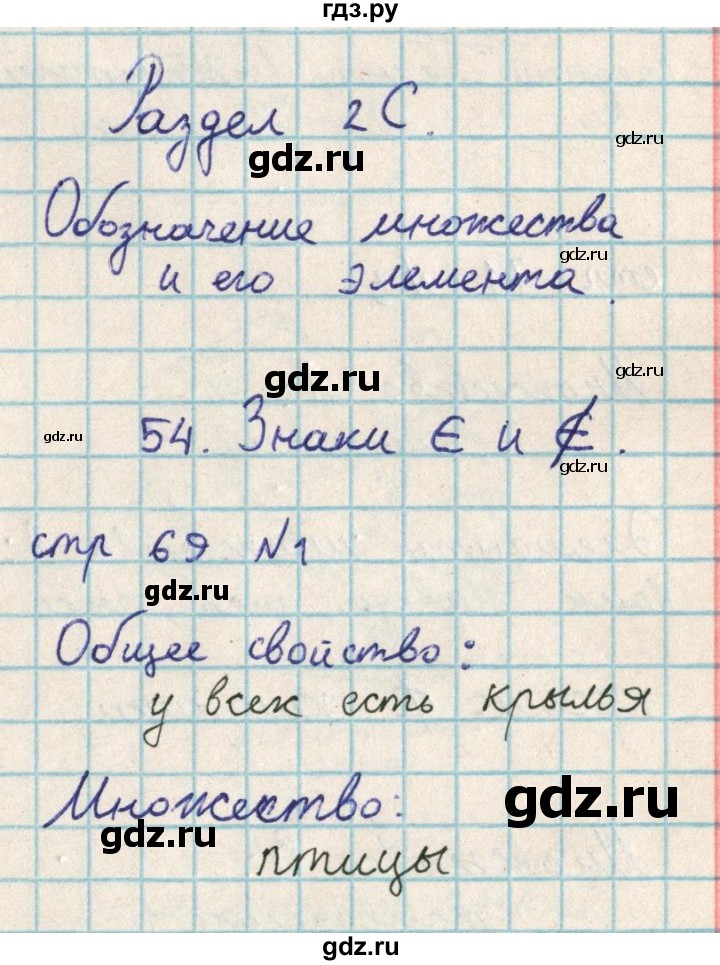 гдз.ру
Раздел 2С.
gdz.ru
gdz.ru
Обозначение множества
gdz.ru
и его элемента.
gdz.ru
gdz.ru
gdz.ru
54. Знаки ∈ и ∉.
gdz.ru
стр 69 №1
gdz.ru
Общее свойство:
у всех есть крылья
Множество:
gdz.ru
gdz.ru
птицы
gdz.ru